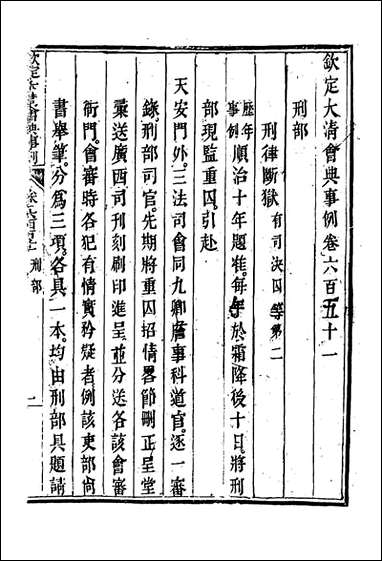 欽定大清會典事例卷六百五十一
刑部
刑律斷獄有司決囚等第二
歷年事例順治十年題准每年於霜降後十日將刑
部現監重囚引赴
天安門外三法司會同九卿詹事科道官逐一審
錄刑部司官先期將重囚招情畧節刪正呈堂
彙送廣西司刊刻刷印進呈並分送各該會審
衙門會審時各犯有情實矜疑者例該吏部尙
書舉筆分爲三項各具一本均由刑部具題請
欽定大清會典事例
刑部